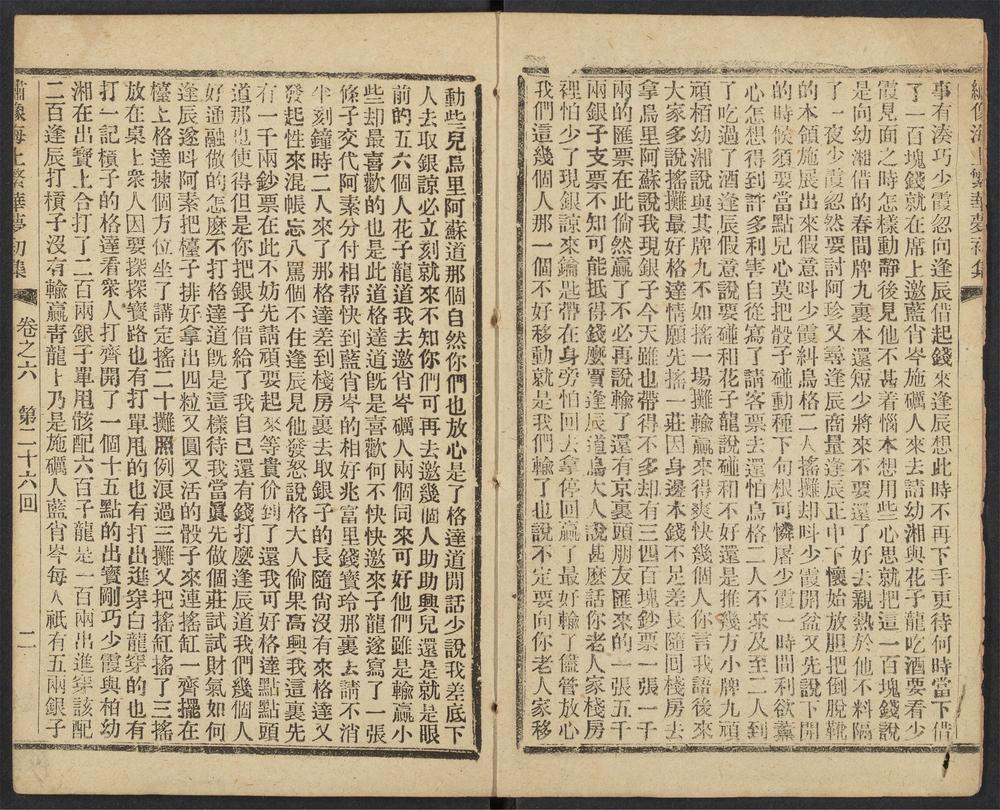 繡像海上繁華夢初集
事有湊巧少霞忽向逢辰借起錢來逢辰想此時不再下手更待何時當下借
了一百塊錢就在席上邀藍肖岑施礪人來去請幼湘與花子龍吃酒要看少
霞見面之時怎樣動靜後見他不甚着惱本想用些心思就把這一百塊錢說
是向幼湘借的春間牌九裏本還短少將來不要還了好去親熱於他不料隔
了一夜少霞忽然要討阿珍又尋逢辰商量逢辰正中下懷始放胆把倒脫靴
的本領施展出來假意叫少霞糾烏格二人搖攤却叫少霞開盆又先說下開
的時候須要當點兒心莫把骰子碰動種下句根可憐屠少霞一時間利欲薰
心怎想得到許多利害自從寫了請客票去還怕烏格二人不來及至二人到
了吃過了酒逢辰假意說要碰和花子龍說碰和不好還是推幾方小牌九頑
頑栢幼湘說與其牌九不如搖一場攤輸贏來得爽快幾個人你言我語後來
大家多說搖攤最好格達情願先搖一莊因身邊本錢不足差長隨回棧房去
拿烏里阿蘇說我現銀子今天雖也帶得不多却有三四百塊鈔票一張一千
兩的匯票在此倘然贏了不必再說輸了還有京裏頭朋友匯來的一張五千
兩銀子支票不知可能抵得錢麼賈逢辰道烏大人說甚麼話你老人家棧房
裡怕少了現銀諒來鑰匙帶在身旁怕回去拿停回贏了最好輸了儘管放心
我們這幾個人那一個不好移動就是我們輸了也說不定要向你老人家移
動些兒烏里阿蘇道那個自然你們也放心是了格達道閒話少說我差底下
人去取銀諒必立刻就來不知你們可再去邀幾個人助助興兒還是就是眼
前的五六個人花子龍道我去邀肖岑礪人兩個同來可好他們雖是輸贏小
些却最喜歡的也是此道格達道旣是喜歡何不快快邀來子龍遂寫了一張
條子交代阿素分付相帮快到藍肖岑的相好兆富里錢寶玲那裏去請不消
半刻鐘時二人來了那格達差到棧房裏去取銀子的長隨尙沒有來格達又
發起性來混帳忘八罵個不住逢辰見他發怒說格大人倘果高興我這裏先
有一千兩鈔票在此不妨先請頑耍起來等貴价到了還我可好格達點點頭
道那也使得但是你把銀子借給了我自已還有錢打麼逢辰道我們幾個人
好通融做的怎麼不打格達道旣是這樣待我當眞先做個莊試試財氣如何
逢辰遂叫阿素把檯子排好拿出四粒又圓又活的骰子來連搖缸一齊擺在
檯上格達揀個方位坐了講定搖二十攤照例浪過三攤又把搖缸搖了三搖
放在桌上衆人因要探探寶路也有打單甩的也有打出進穿白龍穿的也有
打一記槓子的格達看衆人打齊開了一個十五點的出寶剛巧少霞與栢幼
湘在出寶上合打了二百兩銀子單甩該配六百子龍是一百兩出進穿該配
二百逢辰打槓子沒有輸贏靑龍上乃是施礪人藍肖岑每人祇有五兩銀子
繡像海上繁華夢初集
卷之六
第二十六回
二